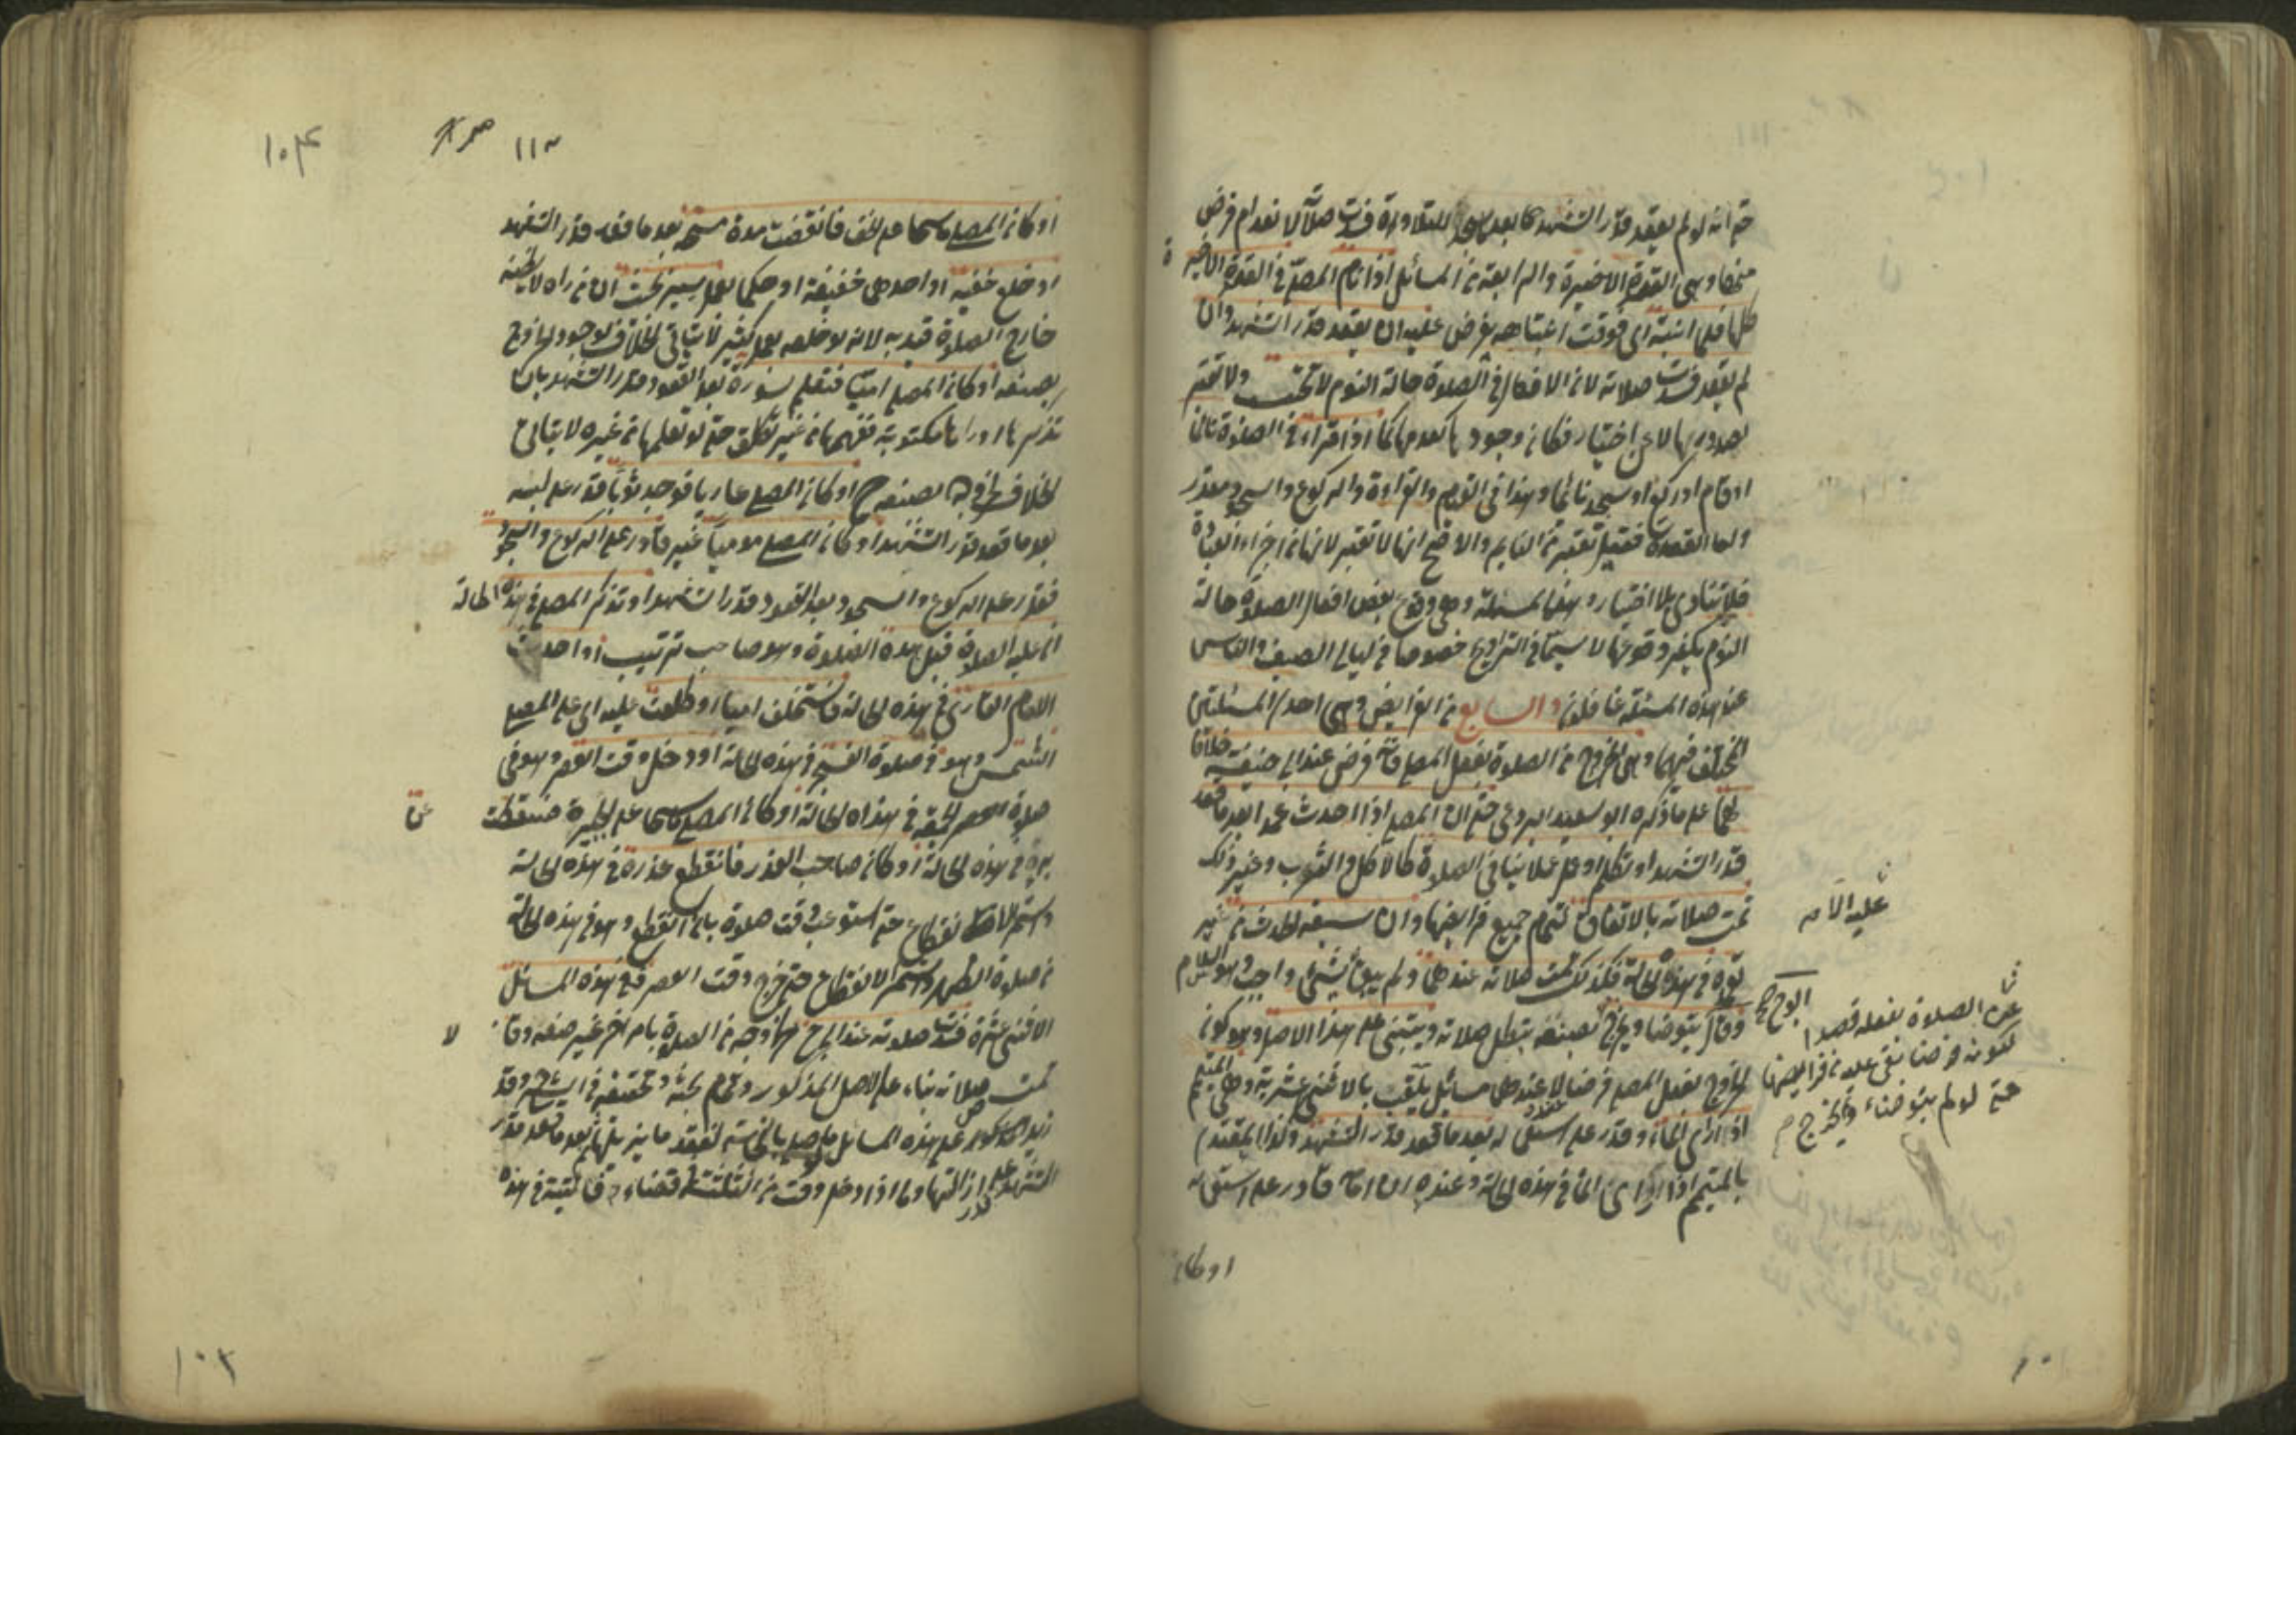 حتى انه لو لم يقعد قدر التشهد بعد للتلاوة فسدت صلاته لانعدام فرض
منها وهي القعدة الاخيرة والرابعة من المسائل اذا نام المصلي في القعدة الاخيرة
كلها فلما انتبه اي فوقت انتباهه يفرض عليه ان يقعد قدر التشهد وان
لم يقعد فسدت صلاته لان الافعال في الصلوة حالة النوم لا تحتسب ولا تعتبر
لصدورها لا عن اختيار فكان وجودها كعدمها كما اذا قرأ في الصلوة نائما
او قام او ركع او سجد نائما وهذا في القيام والقراءة والركوع والسجود مقدر
واما القعدة فقيل تعتبر من النايم والاصح انها لا تعتبر لانها من اجزاء العبادة
فلا تتادى بلا اختيار وهذه المسئلة وهي وقوع بعض افعال الصلوة حالة
النوم يكثر وقوعها لا سيما في التراويح خصوصا في ليالي الصيف والناس
عن هذه المسئلة غافلون والسابع من الفرايض وهي احدى المسئلتين
المختلف فيهما وهي الخروج من الصلوة بفعل المصلي فانه فرض عند ابي حنيفة خلافا
لهما على ما ذكره ابو سعيد البردعي حتى ان المصلي اذا احدث عمدا بعد ما قعد
قدر التشهد او تكلم او عمل عملا ينافي الصلوة كالاكل والشرب وغير ذلك
تمت صلاته بالاتفاق لتمام جميع فرايضها وان سبقه الحدث من غير
عليه الامه
تعمده في هذه الحالة فكذلك تمت صلاته عندهما ولم يبق شيئ واجب وهو السلام
وقال يتوضا ويخرج بصنعه تبطل صلاته ويبتنى على هذا الاصل وهو كون
الخروج بفعل المصلي فرضا عنده لا عندهما مسائل تلقب بالاثني عشرية وهي المتيمم
اذا رأى الماء وقدر على استعماله بعد ما قعد قدر التشهد وكذا المقتدي
بالمتيمم اذا رأى الماء في هذه الحالة وعنده ان امامه قادر على استعماله
ابو ح
عن الصلوة بفعله قصدا
لكونه فرضا بقى عليه من فرايضها
حتى لو لم يتوضاء ويخرج م
او كان
١٠٤
١١٣
او كان المصلي ماسحا على الخف فانقضت مدة مسحه بعد ما قعد قدر التشهد
او خلع خفيه او احدهما خفيفة او حكما بعمل يسير
خارج الصلوة قيد به لانه لو خلعه بعمل كثير لا يتاتى الخلاف لوجود الخروج
بصنعه او كان المصلي اميا فتعلم سورة بعد القعود قدر التشهد بان
تذكرها او رآها مكتوبة ففهمها من غير تكلف حتى لو تعلمها من غيره لا يتاتى
الخلاف بصنعه ح او كان المصلي عاريا فوجد ثوبا قدر على لبسه
بعد ما قعد قدر التشهد او كان المصلي موميا غير قادر على الركوع والسجود
فقدر على الركوع والسجود بعد القعود قدر التشهد او تذكر المصلي في هذه الحالة
ان عليه الصلوة قبل هذه الصلوة وهو صاحب ترتيب او احدث
الامام القارئ في هذه الحالة فاستخلف اميا او طلعت عليه اي على المصلي
الشمس وهو في صلوة الفجر في هذه الحالة او دخل وقت العصر وهو في
صلوة الجمعة في هذه الحالة او كان المصلي ماسحا على الجبيرة فسقطت عن
برء في هذه الحالة او كان صاحب العذر فانقطع عذره في هذه الحالة
واستمر الانقطاع حتى استوعب وقت صلوة بان انقطع وهو في هذه الحالة
من صلوة الظهر واستمر الانقطاع حتى خرج وقت العصر ففي هذه المسائل
الاثني عشرة فسدت صلوته عند ابي ح لانه خرج من الصلوة بامر اخر غير صنعه وقالا
تمت صلاته بناء على الاصل المذكور وتمام بحثه وتحقيقه في الشرح وقد
زيد على هذه المسائل ما صلى بالنجاسة لفقد ما يزيلها بعد ما قعد قدر
التشهد قدر على ازالتها وما اذا دخل وقت من الثلثة قضاء فائتة في هذه
١٠٣